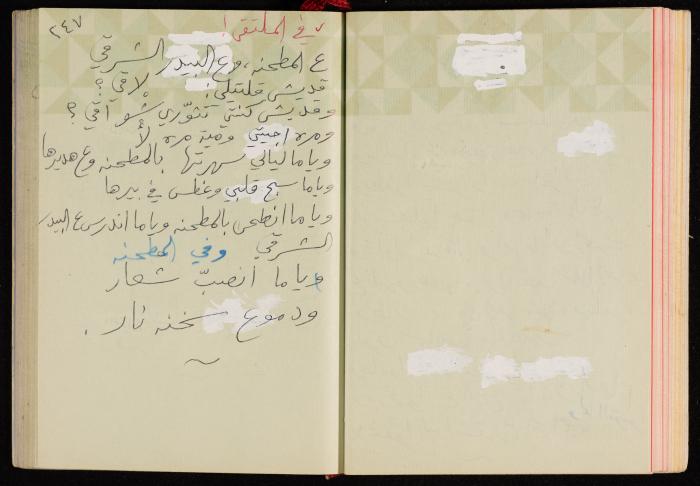 ٢٤٧
في الملتقى!
ع المطحنه، وع البيدر الشرقي
قديش قلتيلي: لاقي؟؟
وقديش كنتي تثوّري شو آقي؟
ومره اجيتي ومية مره لأ
وياما ليالي سهرتها بالمطحنه وع هديرها
وياما سبح قلبي وغطس في بيرها
وياما انطحن بالمطحنه وياما اندرس ع البيدر
الشرقي وفي المطحنه
وياما انصبّ شعار
ودموع سخنه نار.